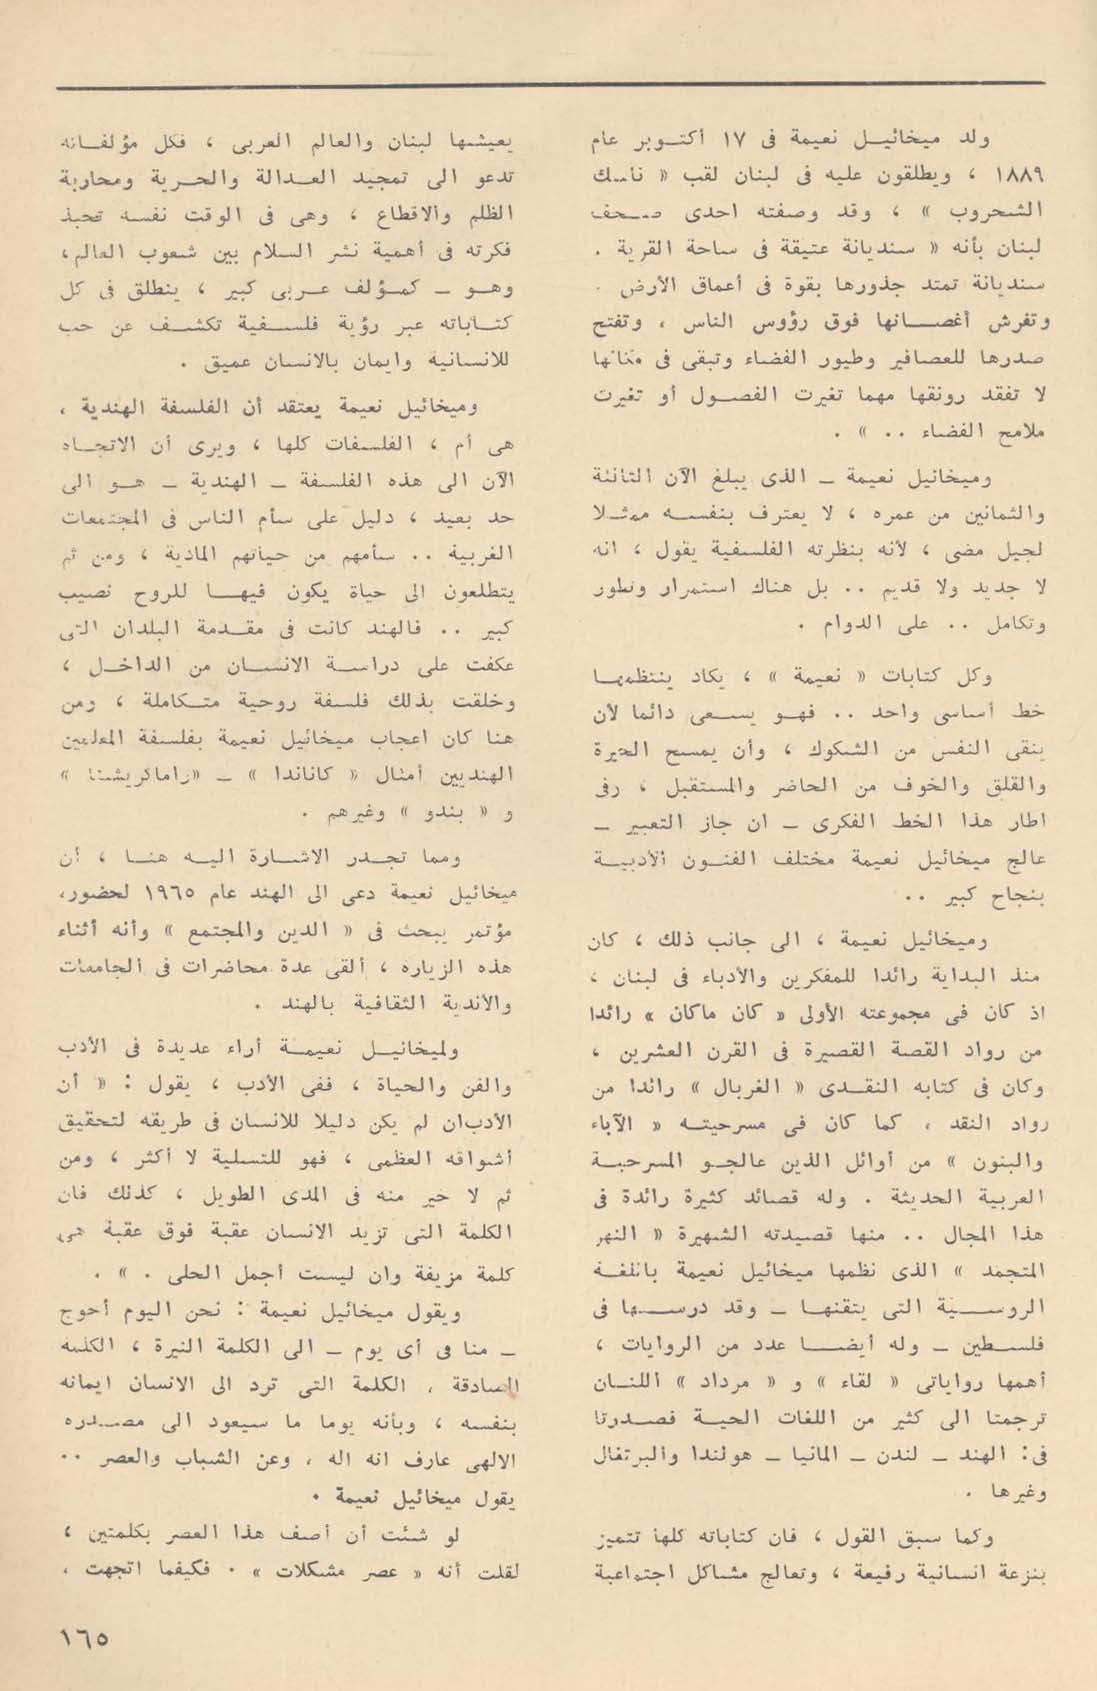 ولد ميخائيل نعيمة فى ١٧ أكتوبر عام
١٨٨٩ ، ويطلقون عليه فى لبنان لقب « ناسك
الشخروب » ، وقد وصفته احدى صحف
لبنان بأنه « سنديانة عتيقة فى ساحة القرية .
سنديانة تمتد جذورها بقوة فى أعماق الأرض .
وتفرش أغصانها فوق رؤوس الناس ، وتفتح
صدرها للعصافير وطيور الفضاء وتبقى فى مكانها
لا تفقد رونقها مهما تغيرت الفصول أو تغيرت
ملامح الفضاء .. » .
وميخائيل نعيمة ـ الذى يبلغ الآن الثالثة
والثمانين من عمره ، لا يعترف بنفسه ممثلا
لجيل مضى ، لأنه بنظرته الفلسفية يقول ، انه
لا جديد ولا قديم .. بل هناك استمرار وتطور
وتكامل .. على الدوام .
وكل كتابات « نعيمة » ، يكاد ينتظمها
خط أساسى واحد .. فهو يسعى دائما لأن
ينقى النفس من الشكوك ، وأن يمسح الحيرة
والقلق والخوف من الحاضر والمستقبل ، وفى
اطار هذا الخط الفكرى ـ ان جاز التعبير ـ
عالج ميخائيل نعيمة مختلف الفنون الأدبية
بنجاح كبير ..
وميخائيل نعيمة ، الى جانب ذلك ، كان
منذ البداية رائدا للمفكرين والأدباء فى لبنان ،
اذ كان فى مجموعته الأولى « كان ماكان » رائدا
من رواد القصة القصيرة فى القرن العشرين ،
وكان فى كتابه النقدى « الغربال » رائدا من
رواد النقد ، كما كان فى مسرحيته « الآباء
والبنون » من أوائل الذين عالجو المسرحية
العربية الحديثة . وله قصائد كثيرة رائدة فى
هذا المجال .. منها قصيدته الشهيرة « النهر
المتجمد » الذى نظمها ميخائيل نعيمة باللغة
الروسية التى يتقنها ـ وقد درسها فى
فلسطين ـ وله أيضا عدد من الروايات ،
أهمها رواياتى « لقاء » و « مرداد » اللتان
ترجمتا الى كثير من اللغات الحية فصدرتا
فى : الهند ـ لندن ـ المانيا ـ هولندا والبرتغال
وغيرها .
وكما سبق القول ، فان كتاباته كلها تتميز
بنزعة انسانية رفيعة ، وتعالج مشاكل اجتماعية
يعيشها لبنان والعالم العربى ، فكل مؤلفاته
تدعو الى تمجيد العدالة والحرية ومحاربة
الظلم والاقطاع ، وهى فى الوقت نفسه تحبذ
فكرته فى أهمية نشر السلام بين شعوب العالم ،
وهو ـ كمؤلف عربى كبير ، ينطلق فى كل
كتاباته عبر رؤية فلسفية تكشف عن حب
للانسانية وايمان بالانسان عميق .
وميخائيل نعيمة يعتقد أن الفلسفة الهندية ،
هى أم ، الفلسفات كلها ، ويرى أن الاتجاه
الآن الى هذه الفلسفة ـ الهندية ـ هو الى
حد بعيد ، دليل على سأم الناس فى المجتمعات
الغربية .. سأمهم من حياتهم المادية ، ومن ثم
يتطلعون الى حياة يكون فيها للروح نصيب
كبير .. فالهند كانت فى مقدمة البلدان التى
عكفت على دراسة الانسان من الداخل ،
وخلقت بذلك فلسفة روحية متكاملة ، ومن
هنا كان اعجاب ميخائيل نعيمة بفلسفة المعلمين
الهنديين أمثال « كاناندا » ـ «راماكريشنا »
و « بندو » وغيرهم .
ومما تجدر الاشارة اليه هنا ، أن
ميخائيل نعيمة دعى الى الهند عام ١٩٦٥ لحضور،
مؤتمر يبحث فى « الدين والمجتمع » وأنه أثناء
هذه الزياره ، ألقى عدة محاضرات فى الجامعات
والأندية الثقافية بالهند .
ولميخائيل نعيمة أراء عديدة فى الأدب
والفن والحياة ، ففى الأدب ، يقول : « أن
الأدبان لم يكن دليلا للانسان فى طريقه لتحقيق
أشواقه العظمى ، فهو للتسلية لا أكثر ، ومن
ثم لا خير منه فى المدى الطويل ، كذلك فان
الكلمة التى تزيد الانسان عقبة فوق عقبة هى
كلمة مزيفة وان ليست أجمل الحلى . » .
ويقول ميخائيل نعيمة : نحن اليوم أحوج
ـ منا فى أى يوم ـ الى الكلمة النيرة ، الكلمة
الصادقة ، الكلمة التى ترد الى الانسان ايمانه
بنفسه ، وبأنه يوما ما سيعود الى مصدره
الالهى عارف انه اله ، وعن الشباب والعصر ..
يقول ميخائيل نعيمة .
لو شئت أن أصف هذا العصر بكلمتين ،
لقلت أنه « عصر مشكلات » . فكيفما اتجهت ،
١٦٥